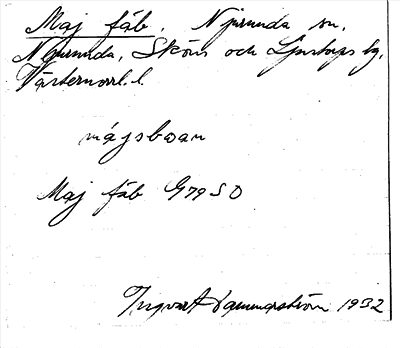 Maj fäb. Njurunda sn,
Njurunda, Sköns och Ljustorps tg,
Västernorrl. l.
májsboan
Maj fäb G79 SO
Ingvar Hammarström 1932